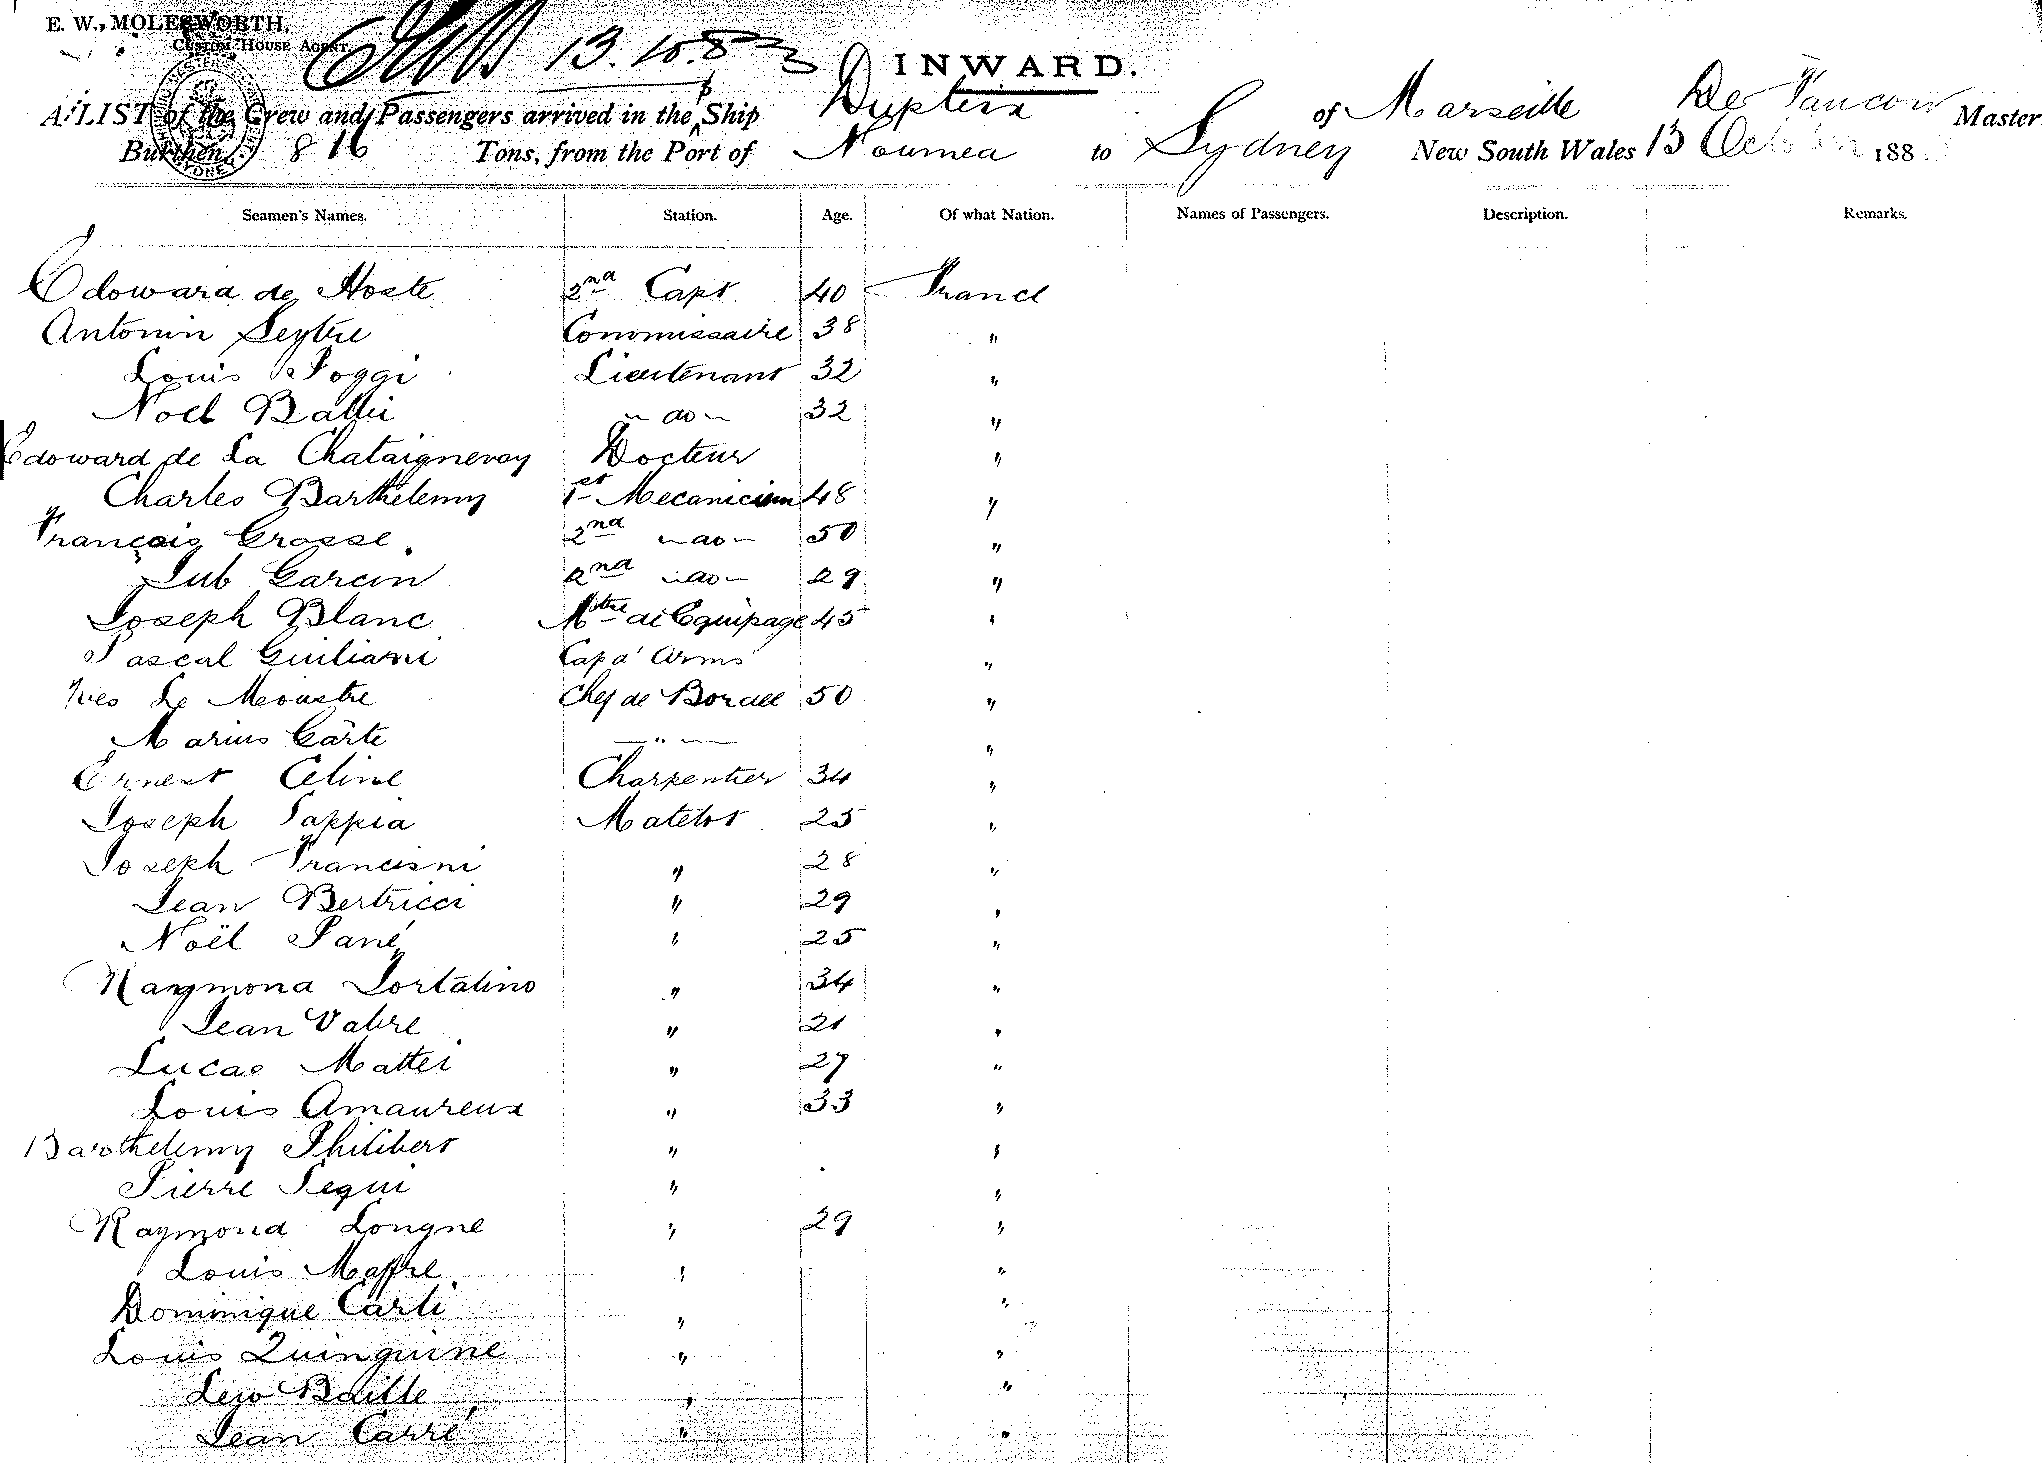 E. W. MOLESWORTH,
CUSTOM HOUSE AGENT.
13.10.83
INWARD.
A LIST of the Crew and Passengers arrived in the Ship Dupleix of Marseille De Vaucon Master
Burthen 816 Tons, from the Port of Noumea to Sydney New South Wales 13 October 188
Seamen's Names. Station. Age. Of what Nation. Names of Passengers. Description. Remarks.
Edoward de Hoste 2nd Capt 40 France
Antonin Seytre Commissaire 38 "
Louis Poggi Lieutenant 32 "
Noel Battii -do- 32 "
Edoward de La Chataigneray Docteur "
Charles Barthelemy 1er Mecanicien 48 "
François Crosse 2nd -do- 50 "
Garcin 2nd -do- 29 "
Joseph Blanc Mtre di Equipage 45 "
Pascal Giuliani Cap d' Arms "
Yves Le Meoustre Chef de Bordee 50 "
Marius Carte " "
Ernest Celine Charpentier 34 "
Joseph Pappia Matelot 25 "
Joseph Francisni " 28 "
Jean Bertricci " 29 "
Noël Pané " 25 "
Raymond Lortalino " 34 "
Jean Vabre " 21 "
Lucas Mattei " 27 "
Louis Amaureux " 33 "
Barthelemy Philibert " "
Pierre Segui " "
Raymond Longne " 29 "
Louis Maffre " "
Dominique Carli " "
Louis Quinquine " "
Leio Baille " "
Jean Carré " "